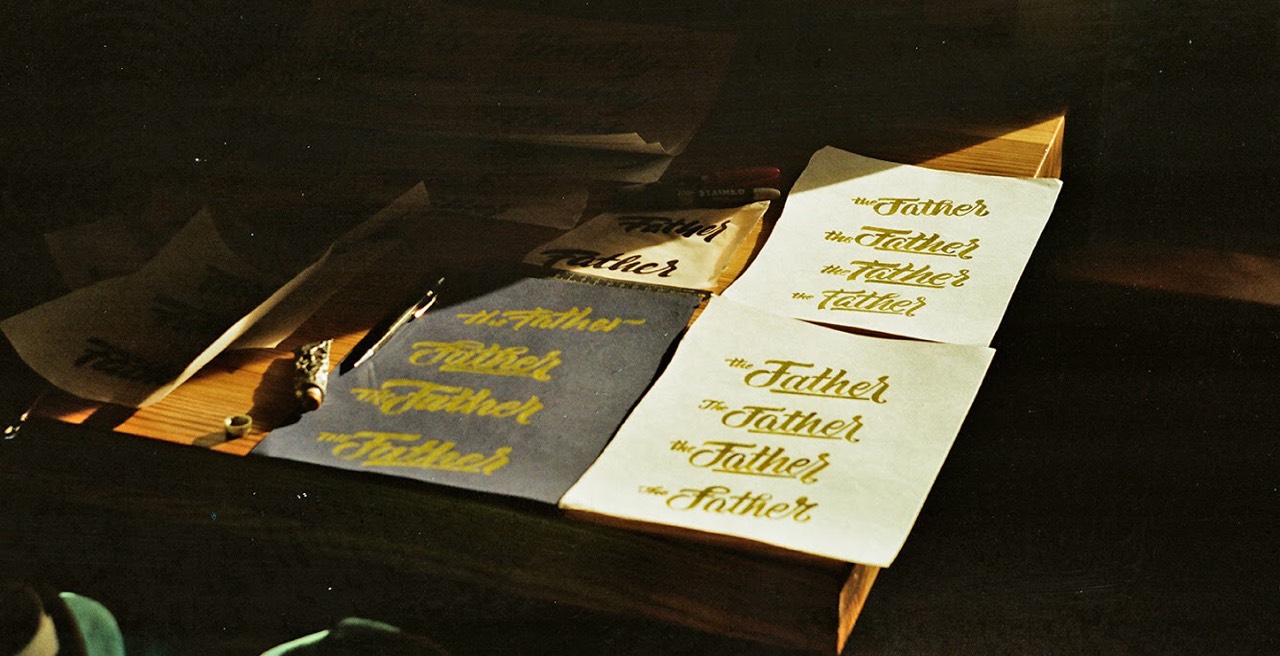 the Father
the Father
the Father
the Father
STAINED
Father
Father
the Father
Father
the Father
The Father
the Father
The Father
the Father
the Father
Father